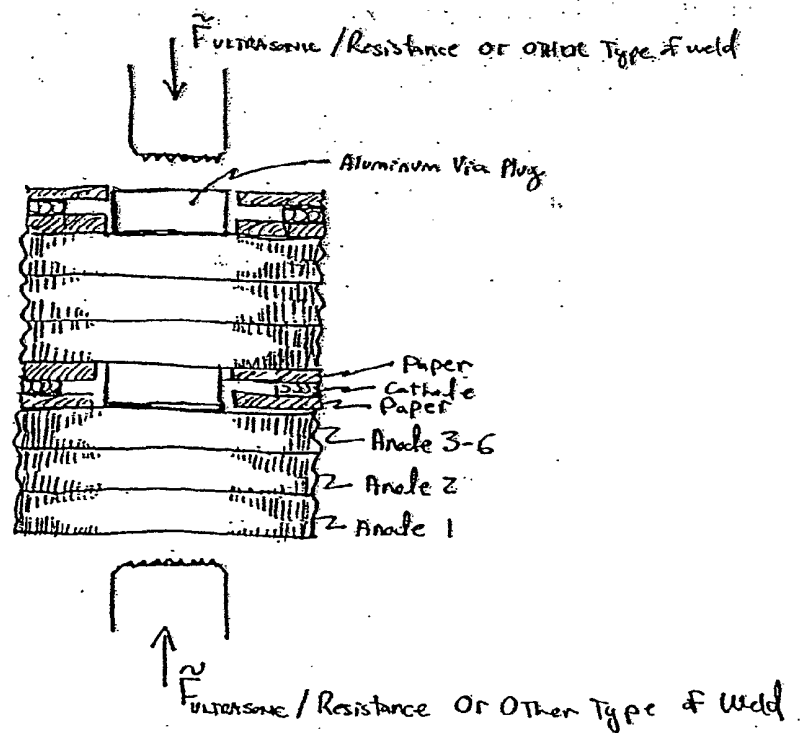 F̃ ULTRASONIC / Resistance Or OTHER Type of weld
Aluminum Via Plug
Paper
Cathode
Paper
Anode 3-6
Anode 2
Anode 1
F̃ ULTRASONIC / Resistance Or OTher Type of Weld